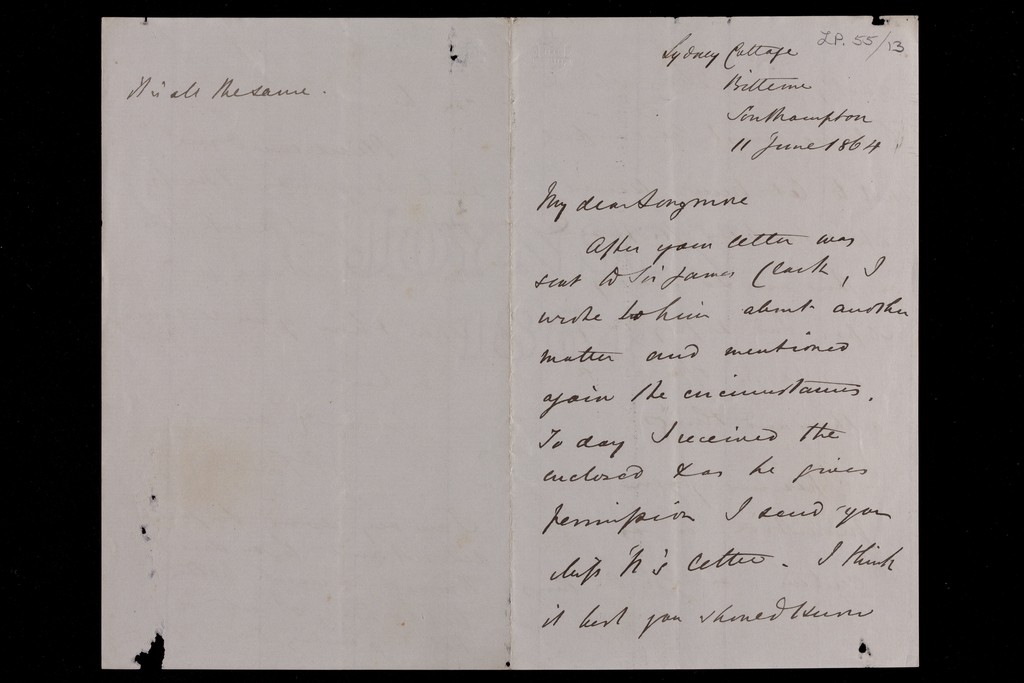 It is all the same.
LP. 55/13
Sydney Cottage
Bitterne
Southampton
11 June 1864
My dear Longmore
After your letter was
sent to Sir James Clark, I
wrote to him about another
matter and mentioned
again the circumstances.
To day I received the
enclosed & as he gives
permission I send you
Miss N's letter. I think
it best you should know